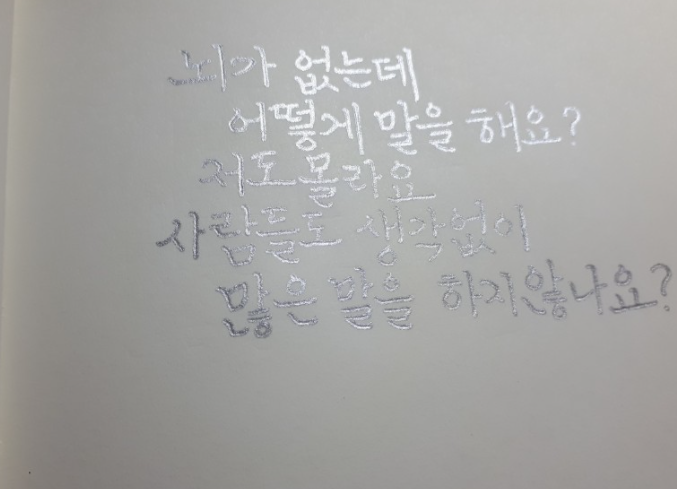 뇌가 없는데
어떻게 말을 해요?
저도몰라요
사람들도 생각없이
많은 말을 하지않나요?